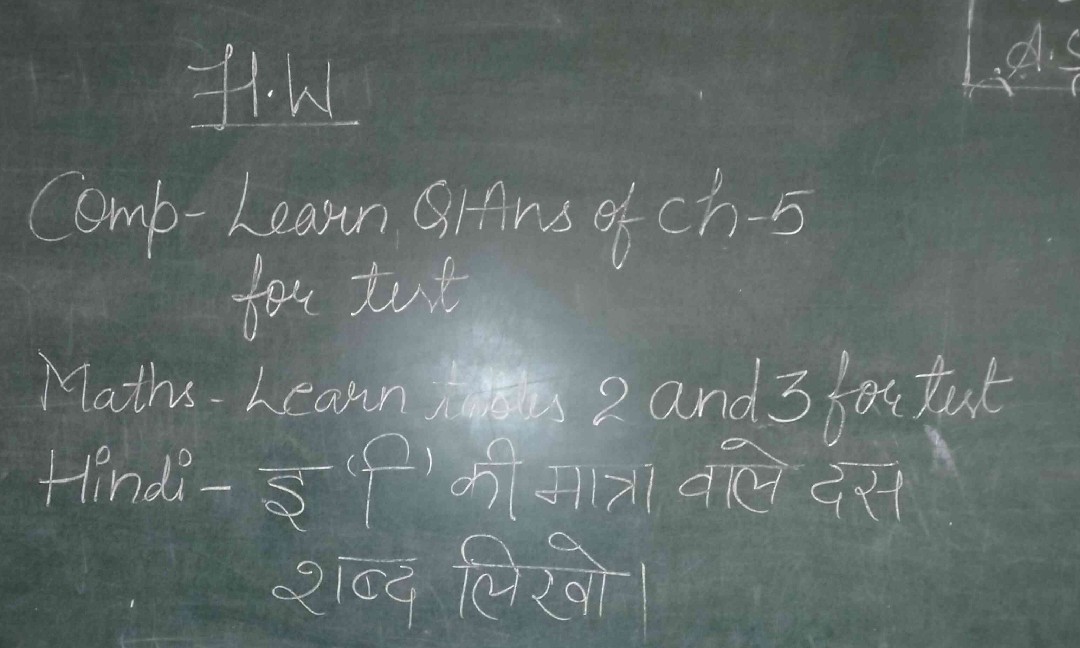 H.W
A.S
Comp- Learn Q/Ans of ch-5
for test
Maths- Learn tables 2 and 3 for test
Hindi- इ 'ि' की मात्रा वाले दस
शब्द लिखो।